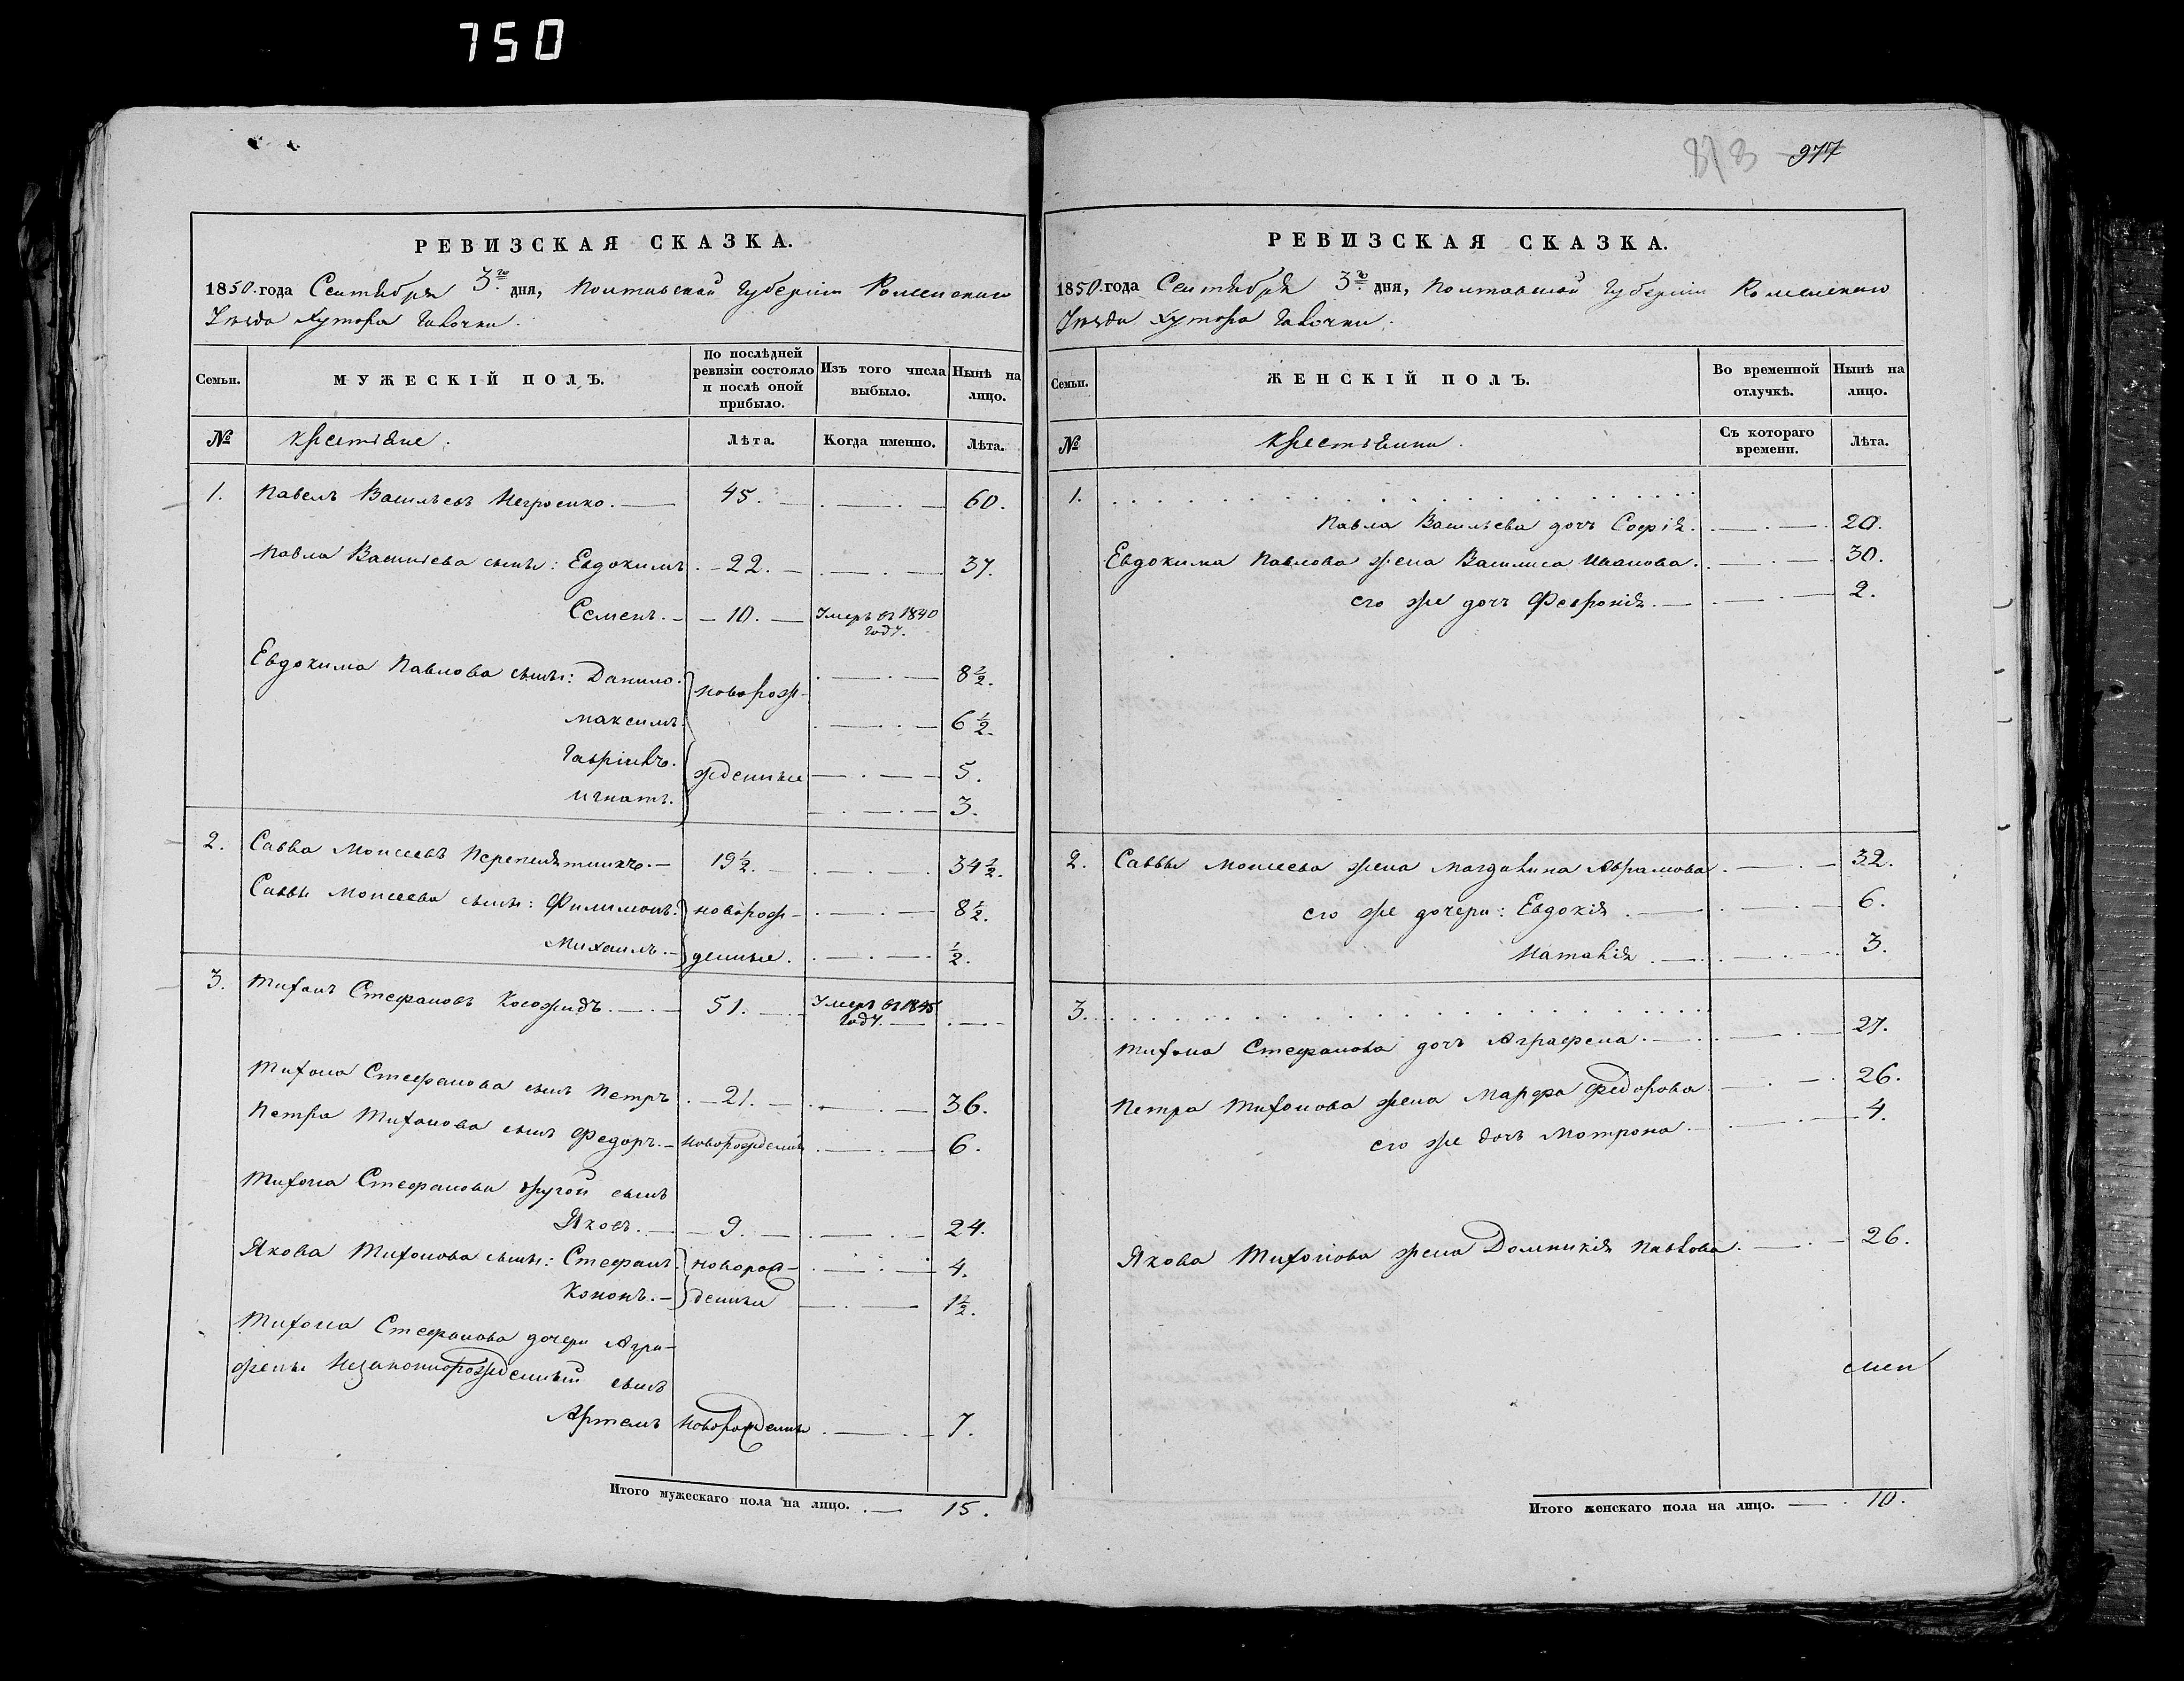 750
813 977
РЕВИЗСКАЯ СКАЗКА.
1850. года Сентября 3го дня, Полтавской Губерніи Роменскаго
Уѣзда хутора Галочки.
Семьи. МУЖЕСКІЙ ПОЛЪ. По послѣдней ревизіи состояло и послѣ оной прибыло. Изъ того числа выбыло. Нынѣ на лицо.
№ крестьяне. Лѣта. Когда именно. Лѣта.
1. Павелъ Васильевъ Негроенко. 45. 60.
Павла Васильева сыны: Евдокимъ 22. 37.
Семенъ. 10. Умеръ въ 1840 году.
Евдокима Павлова сыны: Данило. новорож- 8 1/2.
Максимъ. 6 1/2.
Гавріилъ. жденные 5.
Игнатъ. 3.
2. Савва Моисеевъ Перепелятникъ. 19 1/2. 34 1/2.
Саввы Моисеева сыны: Филимонъ. новорож- 8 1/2.
Михаилъ. денные. 1/2.
3. Тихонъ Стефановъ Косожидъ. 51. Умеръ въ 1845 году.
Тихона Стефанова сынъ Петръ 21. 36.
Петра Тихонова сынъ Федоръ. новорожденный 6.
Тихона Стефанова другой сынъ
Яковъ. 9. 24.
Якова Тихонова сыны: Стефанъ. новорож- 4.
Кононъ. денные 1 1/2.
Тихона Стефанова дочери Агра-
фены Незаконнорожденный сынъ
Артемъ новорожденный 7.
Итого мужескаго пола на лицо. 15.
РЕВИЗСКАЯ СКАЗКА.
1850. года Сентября 3го дня, Полтавской Губерніи Роменскаго
Уѣзда хутора Галочки.
Семьи. ЖЕНСКІЙ ПОЛЪ. Во временной отлучкѣ. Нынѣ на лицо.
№ крестьянки. Съ котораго времени. Лѣта.
1.
Павла Васильева дочь Софія. 20.
Евдокима Павлова жена Василиса Иванова. 30.
его же дочь Февронія. 2.
2. Саввы Моисеева жена Магдалина Абрамова 32.
его же дочери: Евдокія. 6.
Наталія. 3.
3.
Тихона Стефанова дочь Аграфена. 27.
Петра Тихонова жена Марфа Федорова 26.
его же дочь Мотрона. 4.
Якова Тихонова жена Домникія Павлова. 26.
Итого женскаго пола на лицо. 10.